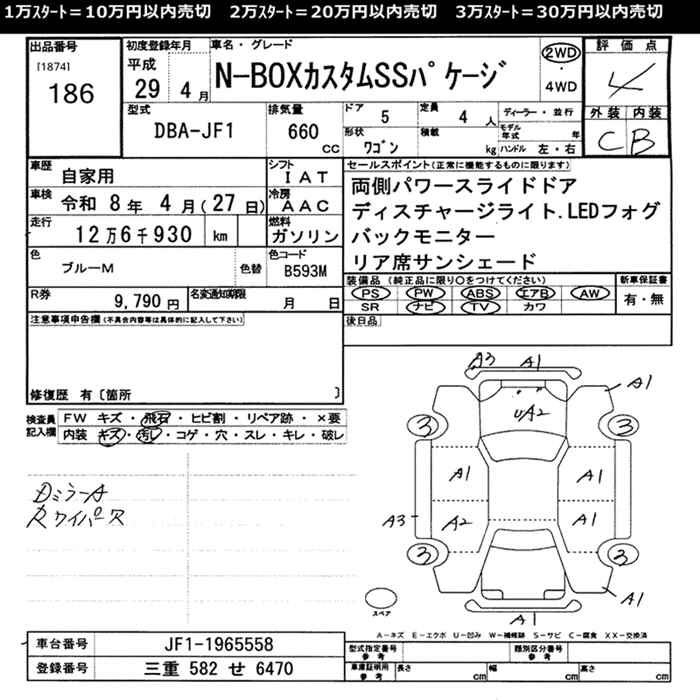 1万スタート＝10万円以内売切　2万スタート＝20万円以内売切　3万スタート＝30万円以内売切
出品番号
[1874]
186
初度登録年月
平成
29年 4月
車名・グレード
N-BOXカスタムSSパケージ
2WD
・
4WD
評価点
4
外装 内装
C B
型式
DBA-JF1
排気量
660 cc
ドア
5
定員
4人
形状
ワゴン
積載
kg
ディーラー・並行
モデル年式 年
ハンドル 左・右
車歴
自家用
シフト
IAT
車検
令和 8年 4月(27日)
冷房
AAC
走行
12万6千930 km
燃料
ガソリン
色
ブルーM
色替
色コード
B593M
R券
9,790円
名変通知期限
月 日
セールスポイント(正常に機能するものに限ります)
両側パワースライドドア
ディスチャージライト.LEDフォグ
バックモニター
リア席サンシェード
装備品(純正品に限り○をつけてください)
PS PW ABS エアB AW
SR ナビ TV カワ
新車保証書
有・無
後日品
注意事項申告欄(不具合内容等は具体的に記入して下さい)
修復歴 有〔箇所 〕
検査員記入欄
FW キズ・飛石・ヒビ割・リペア跡・×要
内装 キズ・汚れ・コゲ・穴・スレ・キレ・破レ
DミラーA
Rワイパース
A3 A1
A1
UA2
3 3
A1 A1
A3 A2 A1
3 3
A1
A1
スペア
A-キズ E-エクボ U-凹み W-補修跡 S-サビ C-腐食 XX-交換済
車台番号
JF1-1965558
登録番号
三重 582 せ 6470
型式指定番号
参考
類別区分番号
参考
車庫証明用
参考
長さ cm
幅 cm
高さ cm